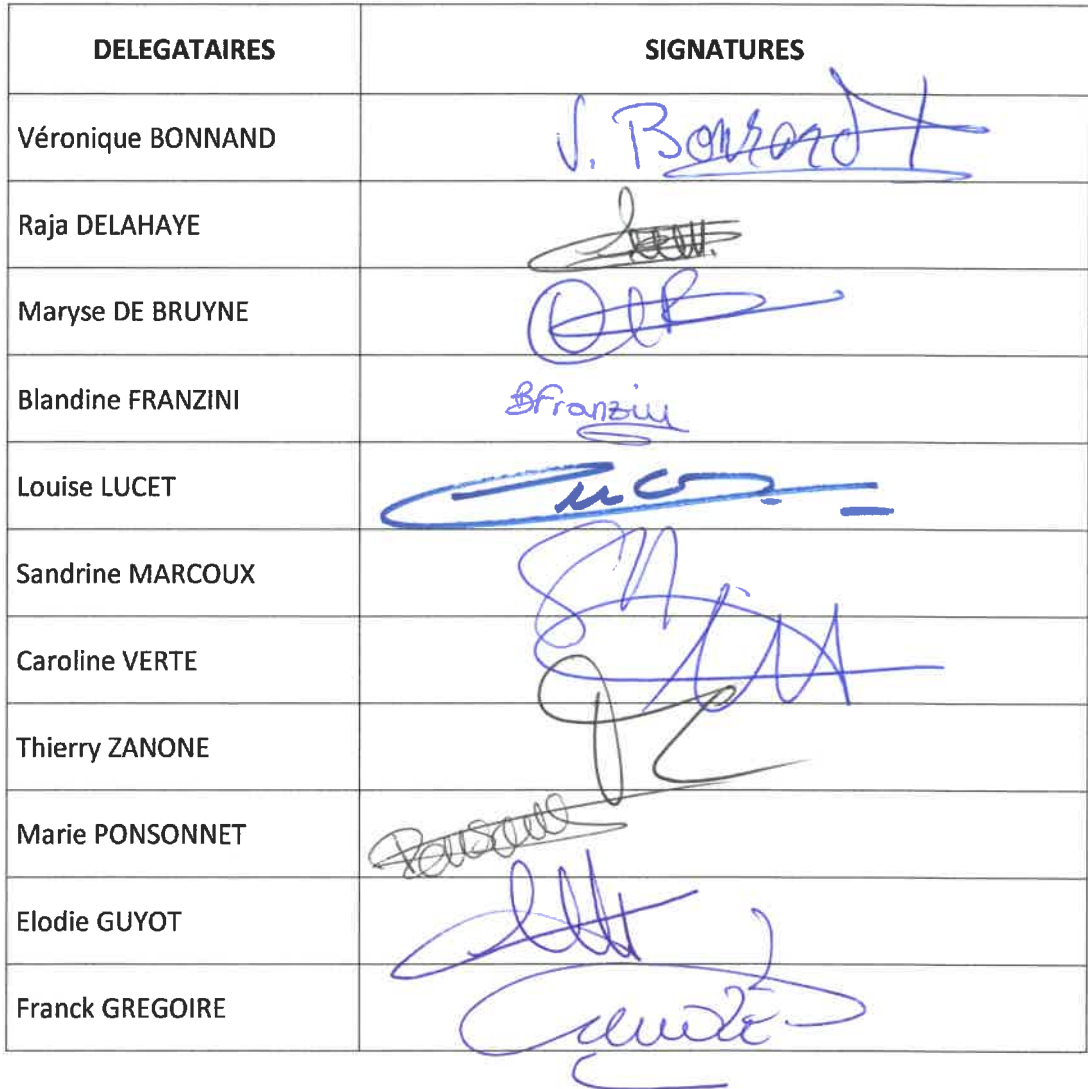 DELEGATAIRES SIGNATURES
Véronique BONNAND V. Bonnand
Raja DELAHAYE
Maryse DE BRUYNE
Blandine FRANZINI BFranzini
Louise LUCET
Sandrine MARCOUX
Caroline VERTE
Thierry ZANONE
Marie PONSONNET
Elodie GUYOT
Franck GREGOIRE